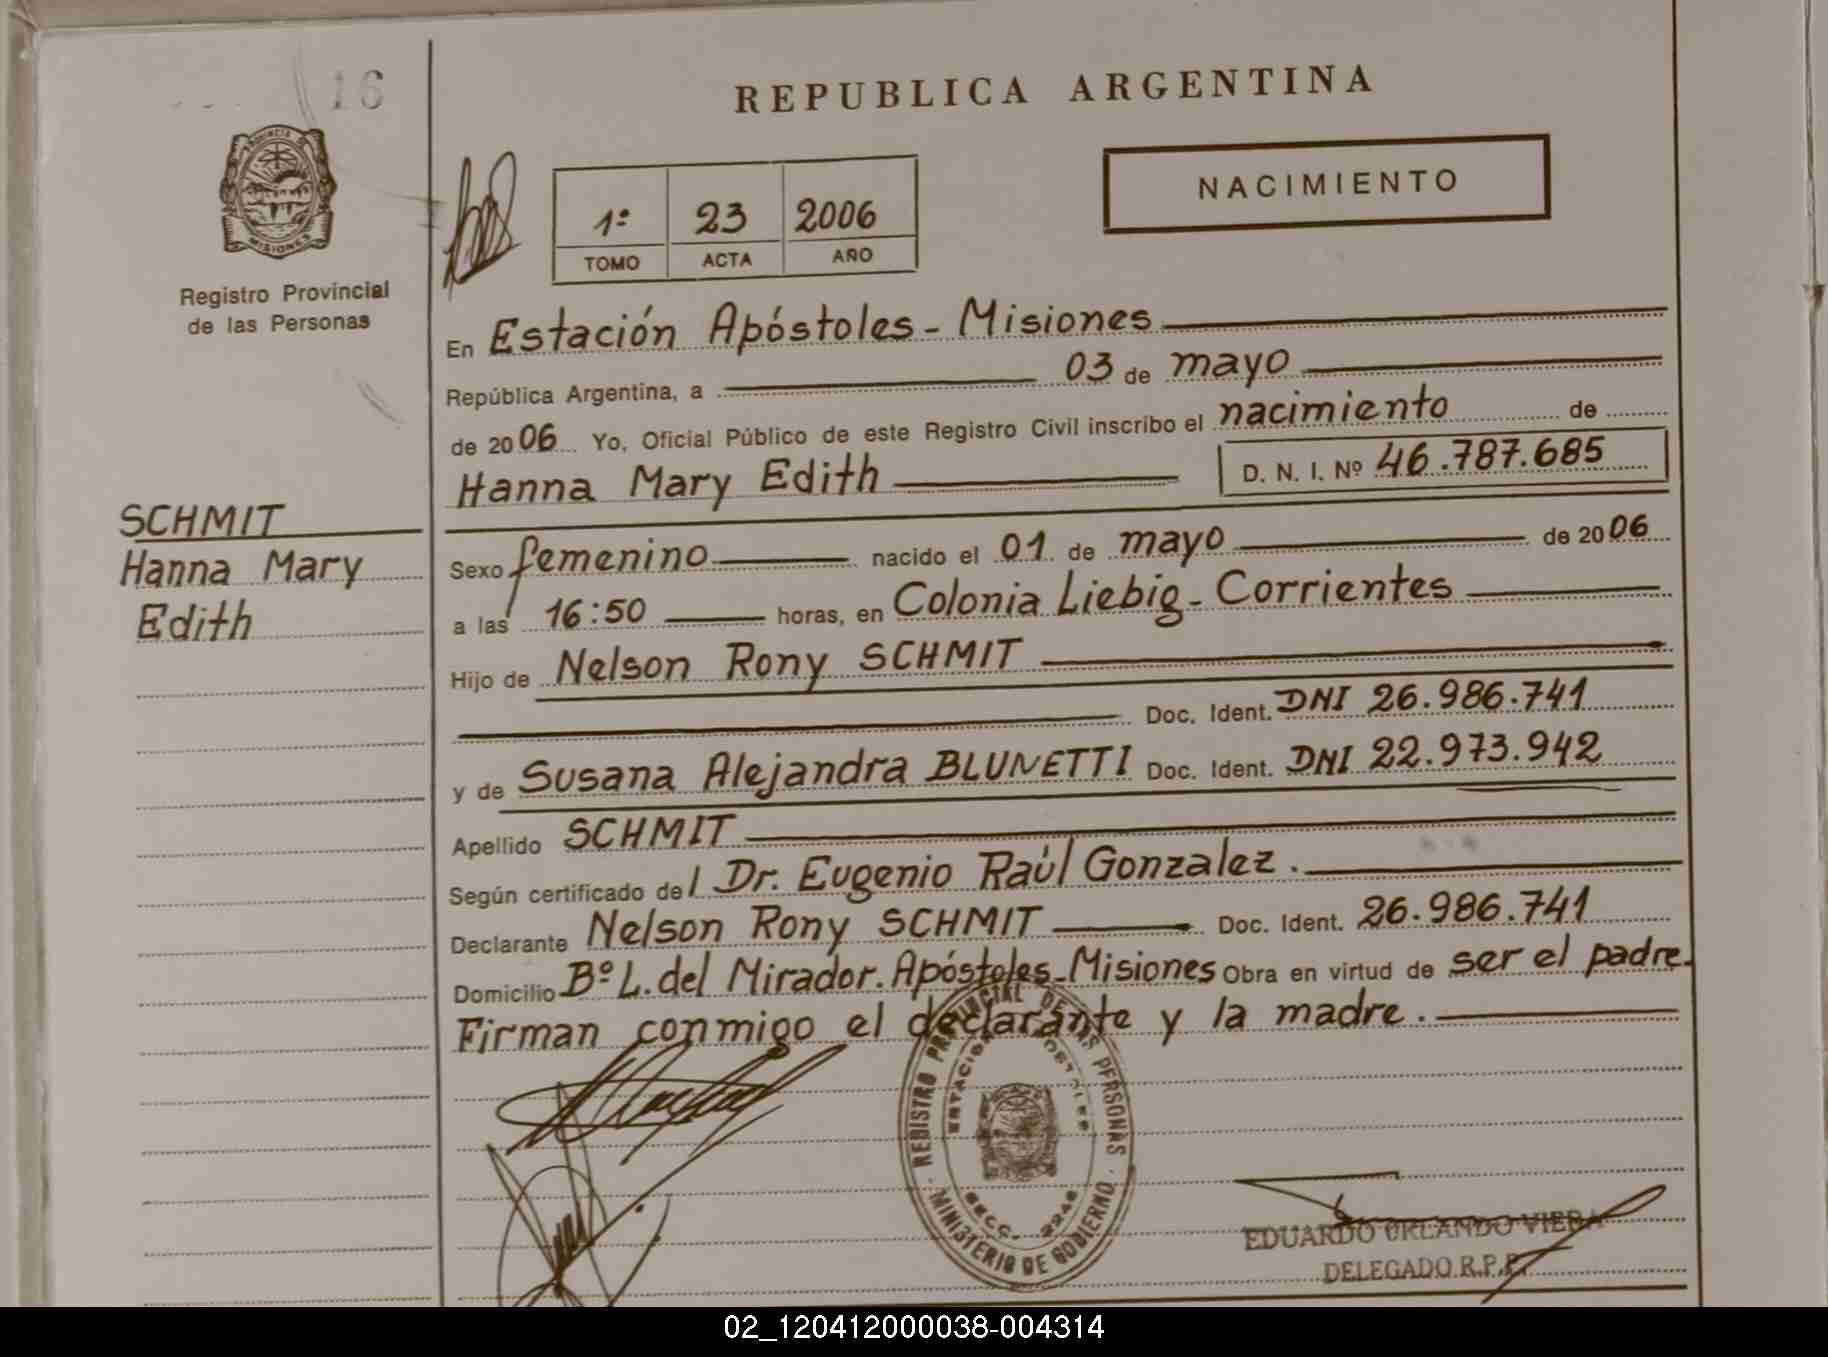 16
REPUBLICA ARGENTINA
NACIMIENTO
1º 23 2006
TOMO ACTA AÑO
PROVINCIA DE
MISIONES
Registro Provincial
de las Personas
En Estación Apóstoles - Misiones
República Argentina, a 03 de mayo
de 2006 Yo, Oficial Público de este Registro Civil inscribo el nacimiento de
Hanna Mary Edith D. N. I. Nº 46.787.685
SCHMIT
Hanna Mary
Edith
Sexo femenino nacido el 01 de mayo de 2006
a las 16:50 horas, en Colonia Liebig - Corrientes
Hijo de Nelson Rony SCHMIT
Doc. Ident. DNI 26.986.741
y de Susana Alejandra BLUNETTI Doc. Ident. DNI 22.973.942
Apellido SCHMIT
Según certificado del Dr. Eugenio Raúl Gonzalez.
Declarante Nelson Rony SCHMIT Doc. Ident. 26.986.741
Domicilio Bº L. del Mirador. Apóstoles - Misiones Obra en virtud de ser el padre.
Firman conmigo el declarante y la madre.
REGISTRO PROVINCIAL DE LAS PERSONAS
ESTACION APOSTOLES
SECC. 2246
MINISTERIO DE GOBIERNO
EDUARDO ORLANDO VIERA
DELEGADO R.P.P.
02_120412000038-004314